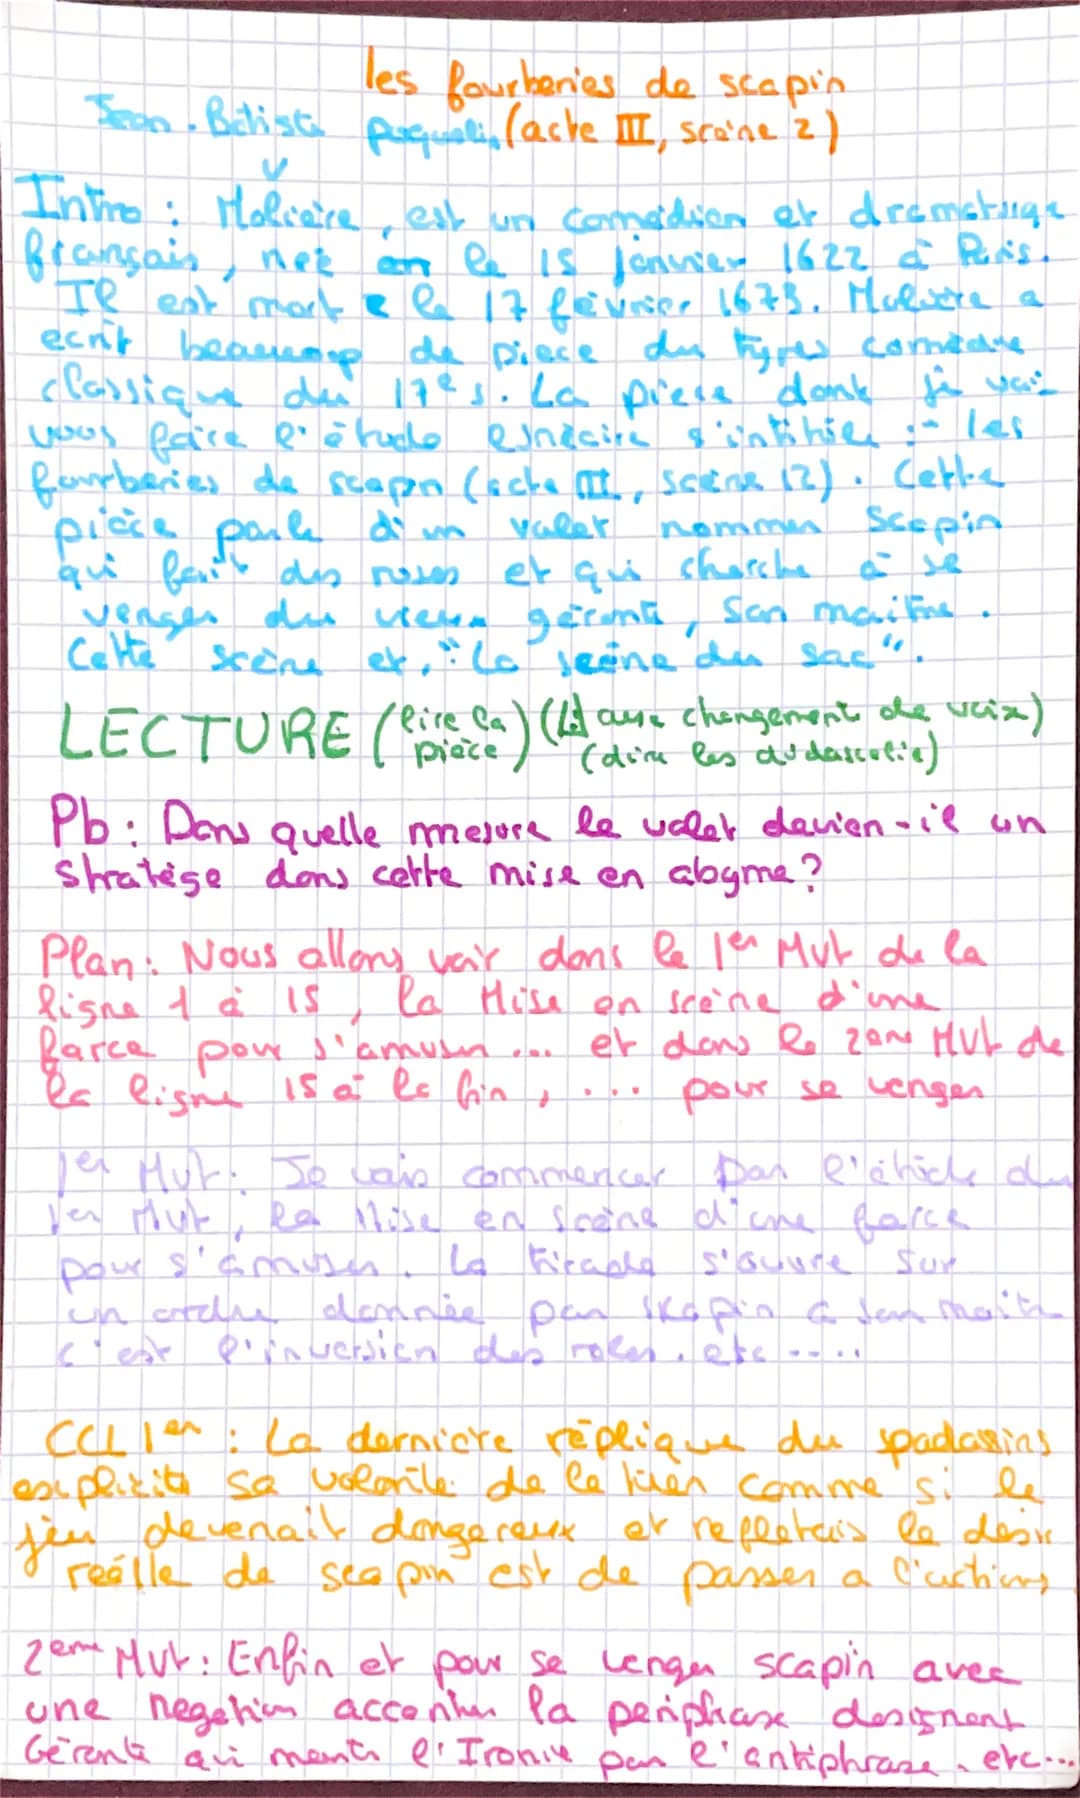 les fourberies de scapin
Jean-Batista poquelin (acte III, scène 2)
Intro : Molière, est un comédien et dramaturge
français, neé le 15 janvier 1622 à Paris.
Il est mort le 17 février 1673. Moliere a
ecrit beaucoup de piece du types comédie
classique du 17e s. La piece dont je vais
vous faire l'étude linéaire s'intitule :- les
fourberies de scapin (acte III, scène 2). Cette
pièce parle d'un valet nommer Scapin
qui fait des ruses et qui cherche à se
venger du vieux géronte, son maitre.
Cette scène et, "la scène du sac".
LECTURE (lire la pièce) (avec changement de voix)
(dire les didascalie)
Pb : Dans quelle mesure le valet devien-il un
stratège dans cette mise en abyme?
Plan : Nous allons voir dans le 1er Mvt de la
ligne 1 à 15, la Mise en scène d'une
farce pour s'amuser ... et dans le 2eme Mvt de
la ligne 15 à la fin, ... pour se venger
1er Mvt : Je vais commencer par l'étude du
1er Mvt, la Mise en scène d'une farce
pour s'amuser. la tirade s'ouvre sur
un ordre donnée par skapin à son maitre
c'est l'inversion des roles. etc .....
CCL 1er : La dernière réplique du spadassins
explicite sa volonté de le tuer comme si le
jeu devenait dangereux et refletais le desir
reélle de scapin est de passer a l'actions
2eme Mvt : Enfin et pour se venger scapin avec
une negation accentuer la periphrase designent
Géronte qui l'Ironie par l'antiphrase. etc...